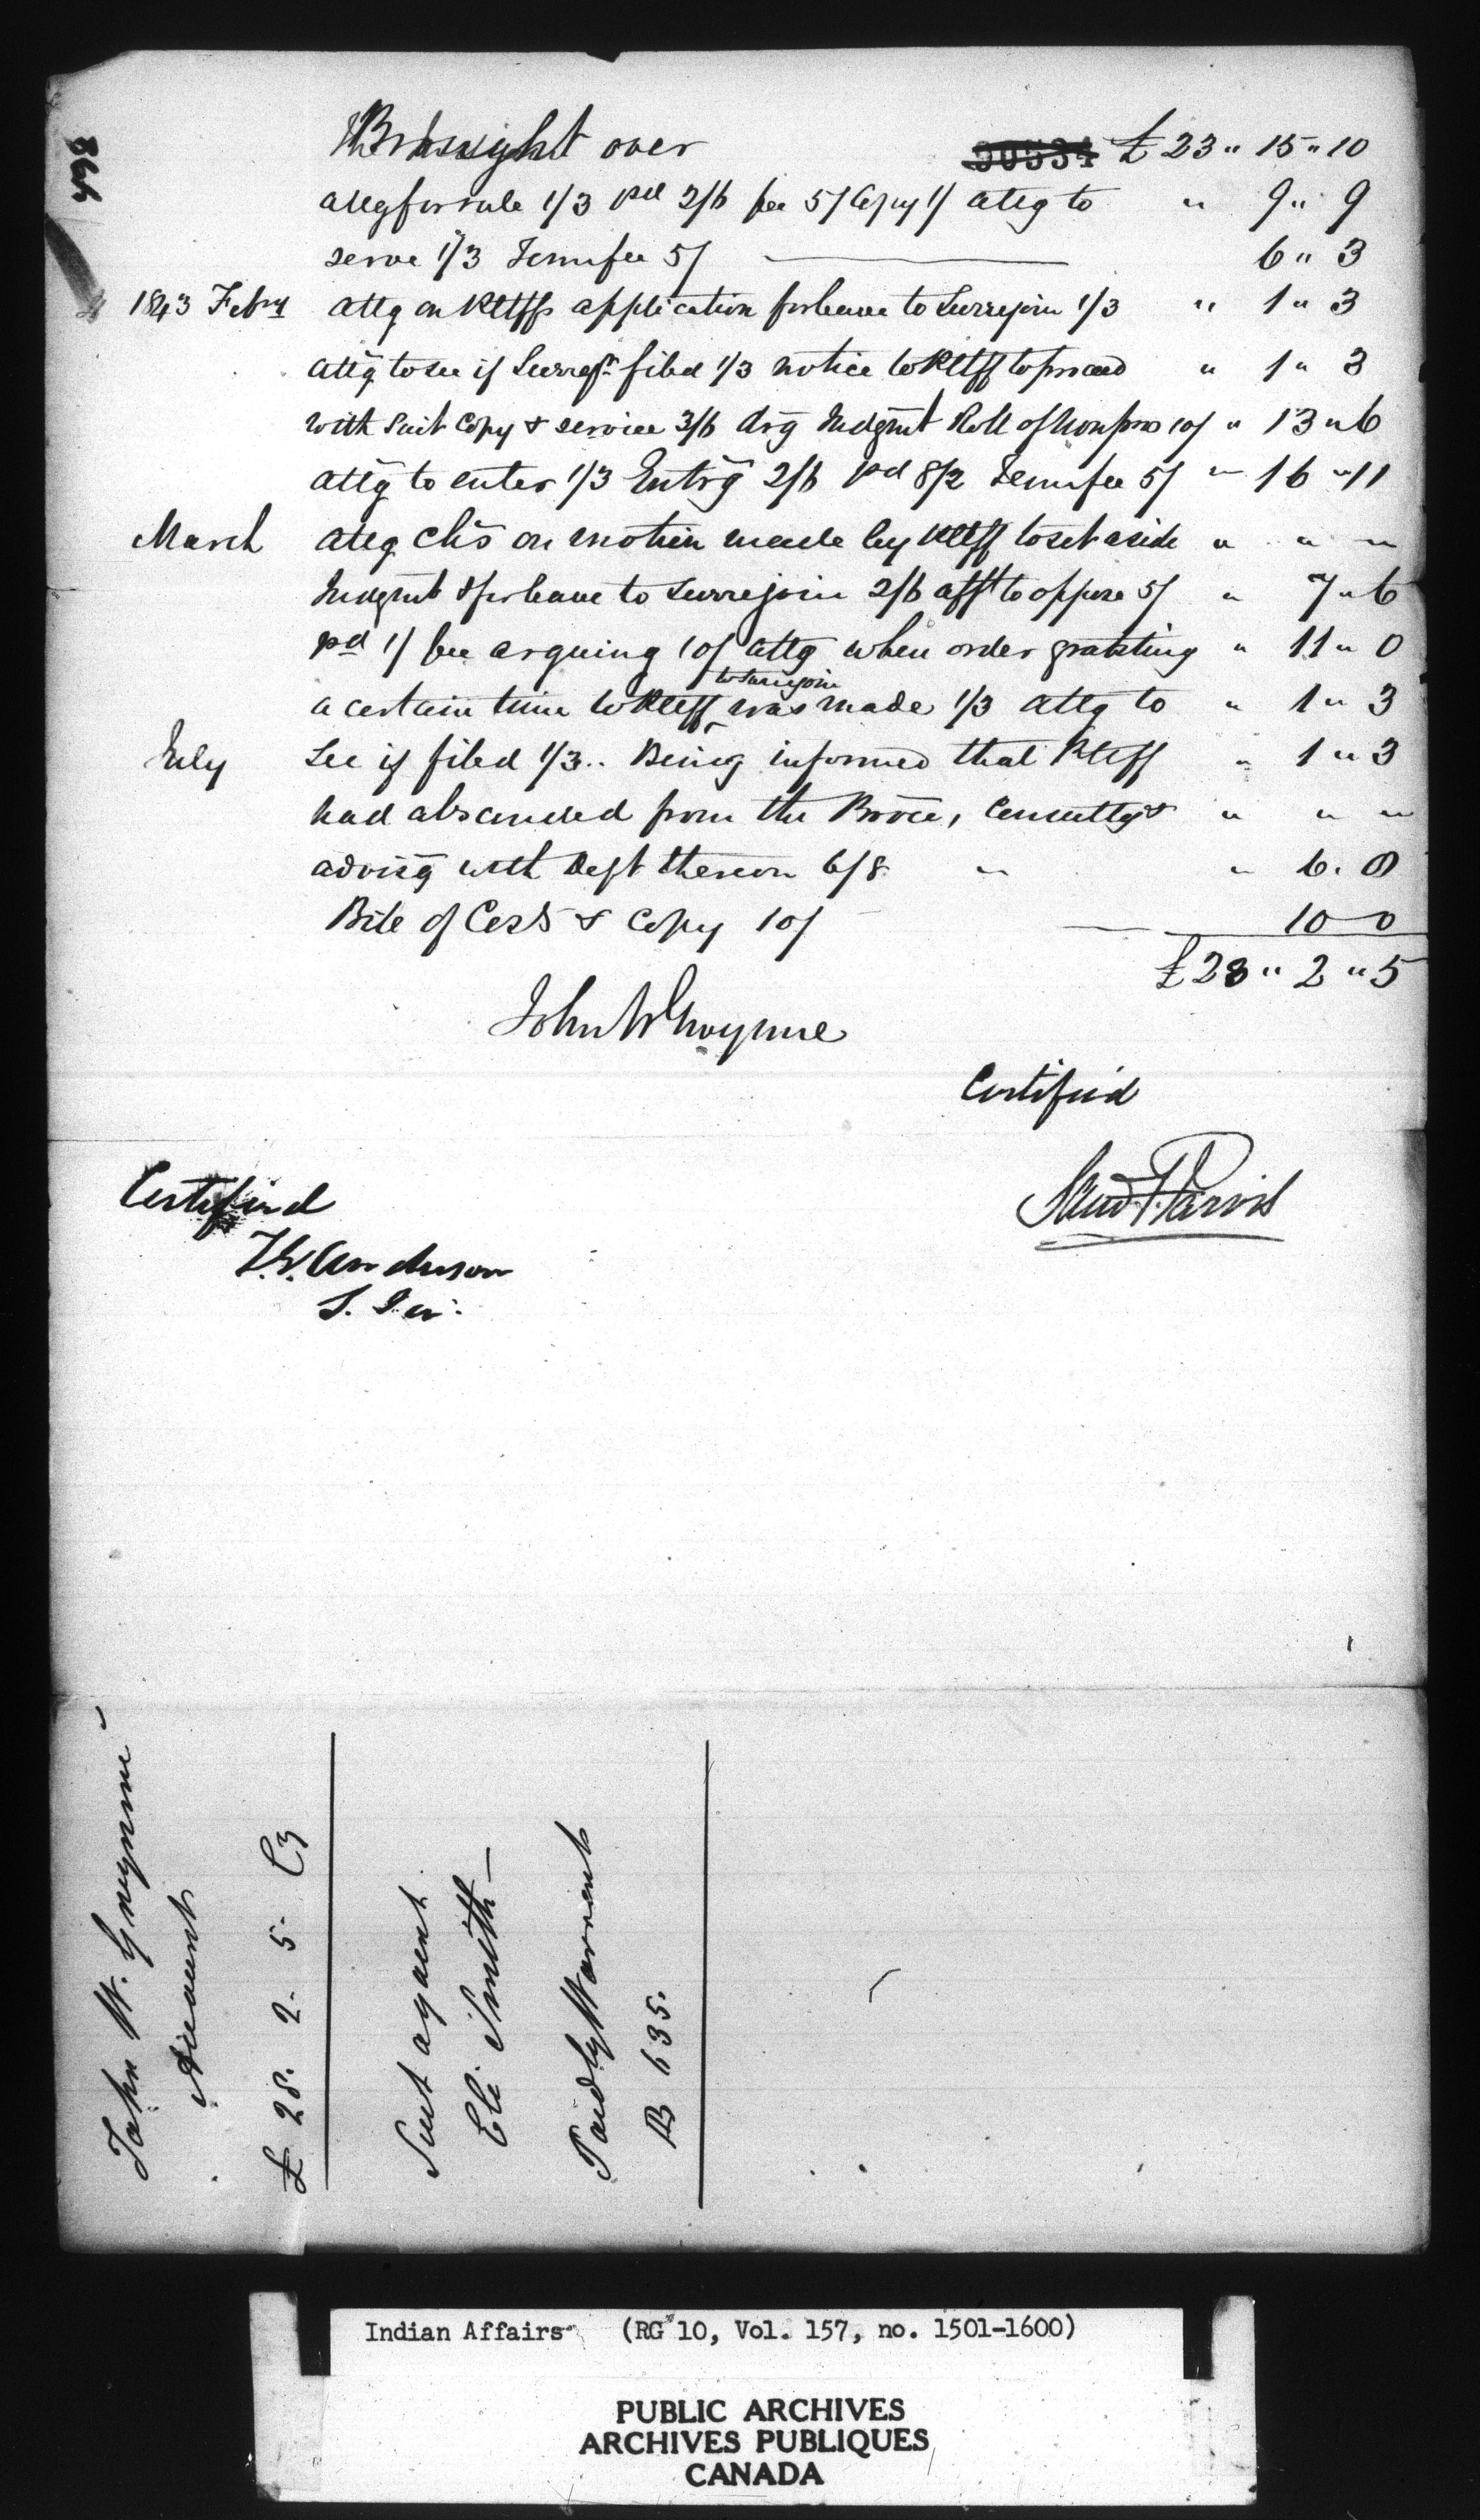 Brought over 90534 £ 23 " 15 " 10
attg for rule 1/3 pd 2/6 fee 5/ Copy 1/ attg to " 9 " 9
serve 1/3 Termfee 5/ 6 " 3
1843 Feby attg on Pltffs application for leave to Surrejoin 1/3 " 1 " 3
attg to see if Surrejr filed 1/3 notice to Pltff to proceed " 1 " 3
with suit Copy & service 3/6 drg Judgmt Roll of Nonpros 10/ " 13 " 6
attg to enter 1/3 Entrg 2/6 pd 8/2 Termfee 5/ " 16 " 11
March attg Chs on motion made by Pltff to set aside " " "
Judgmt & for leave to surrejoin 2/6 afft to oppose 5/ " 7 " 6
pd 1/ fee arguing 10/ attg when order granting " 11 " 0
a certain time to Pltff to surrejoin was made 1/3 attg to " 1 " 3
July See if filed 1/3 .. Being informed that Pltff " 1 " 3
had absconded from the Provce, Consultg & " " "
advisg with Deft thereon 6/8 " " 6. 8
Bill of Costs & Copy 10/ 10 - 0
£ 28 " 2 " 5
John W Gwynne
Certified
Saml P Jarvis
Certified
T. G. Anderson
S. I. A.
John W. Gwynne
Account
£ 28. 2. 5. Cy
Suit against
Eli Smith
Paid by Warrent
B 635.
Indian Affairs (RG 10, Vol. 157, no. 1501-1600)
PUBLIC ARCHIVES
ARCHIVES PUBLIQUES
CANADA